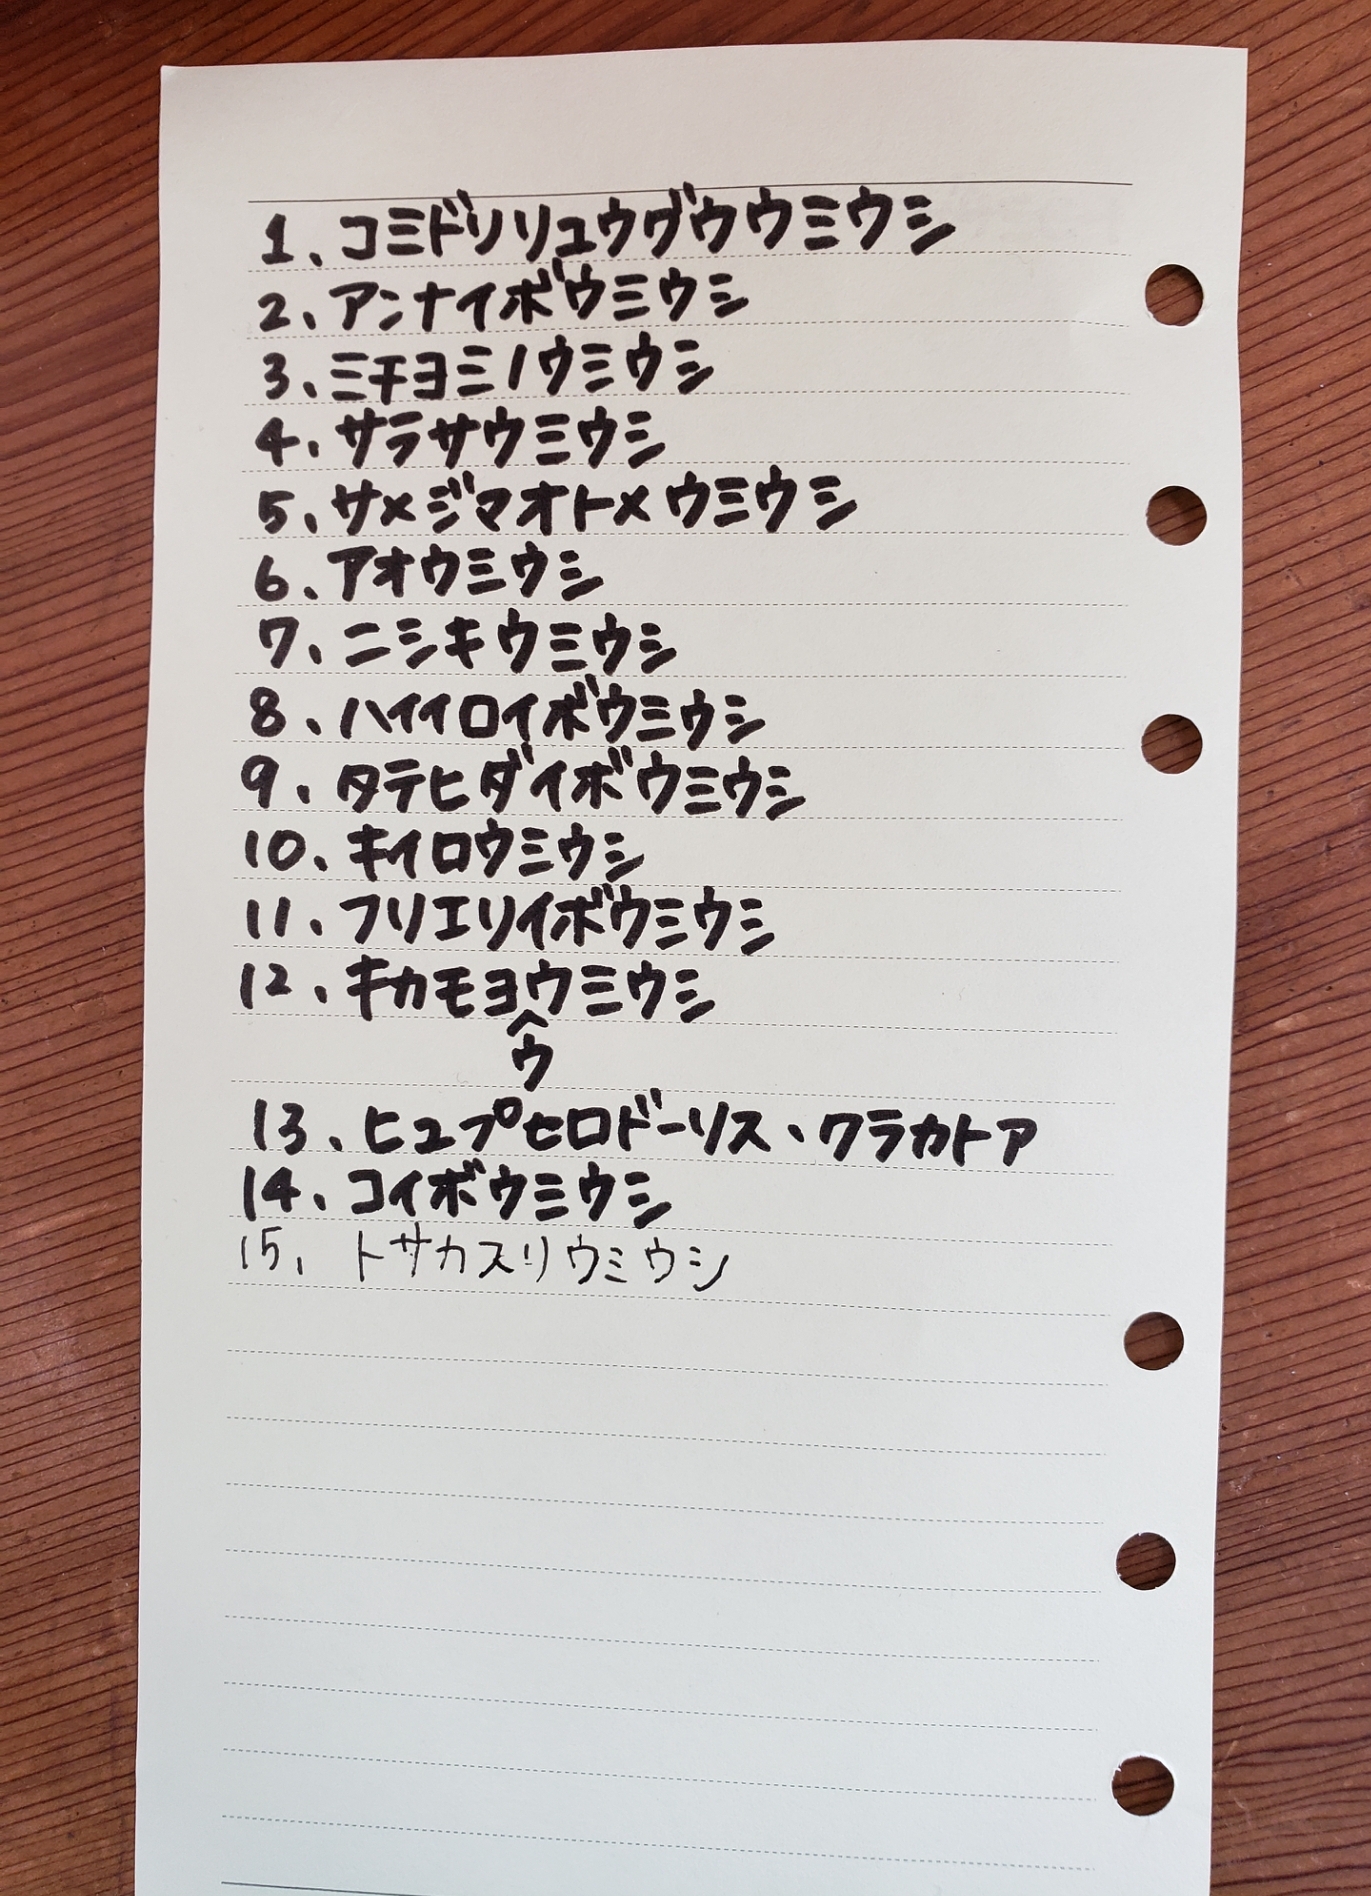 1、コミドリリュウグウウミウシ
2、アンナイボウミウシ
3、ミチヨミノウミウシ
4、サラサウミウシ
5、サメジマオトメウミウシ
6、アオウミウシ
7、ニシキウミウシ
8、ハイイロイボウミウシ
9、タテヒダイボウミウシ
10、キイロウミウシ
11、フリエリイボウミウシ
12、キカモヨウミウシ
^
ウ
13、ヒュプセロドーリス・クラカトア
14、コイボウミウシ
15、トサカスリウミウシ